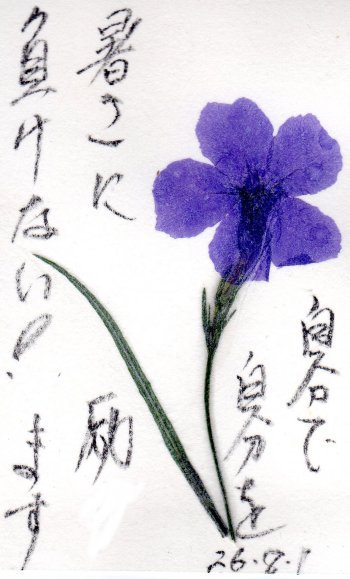 暑さに
負けない！
自分で
自分を
励
ます
26.8.1